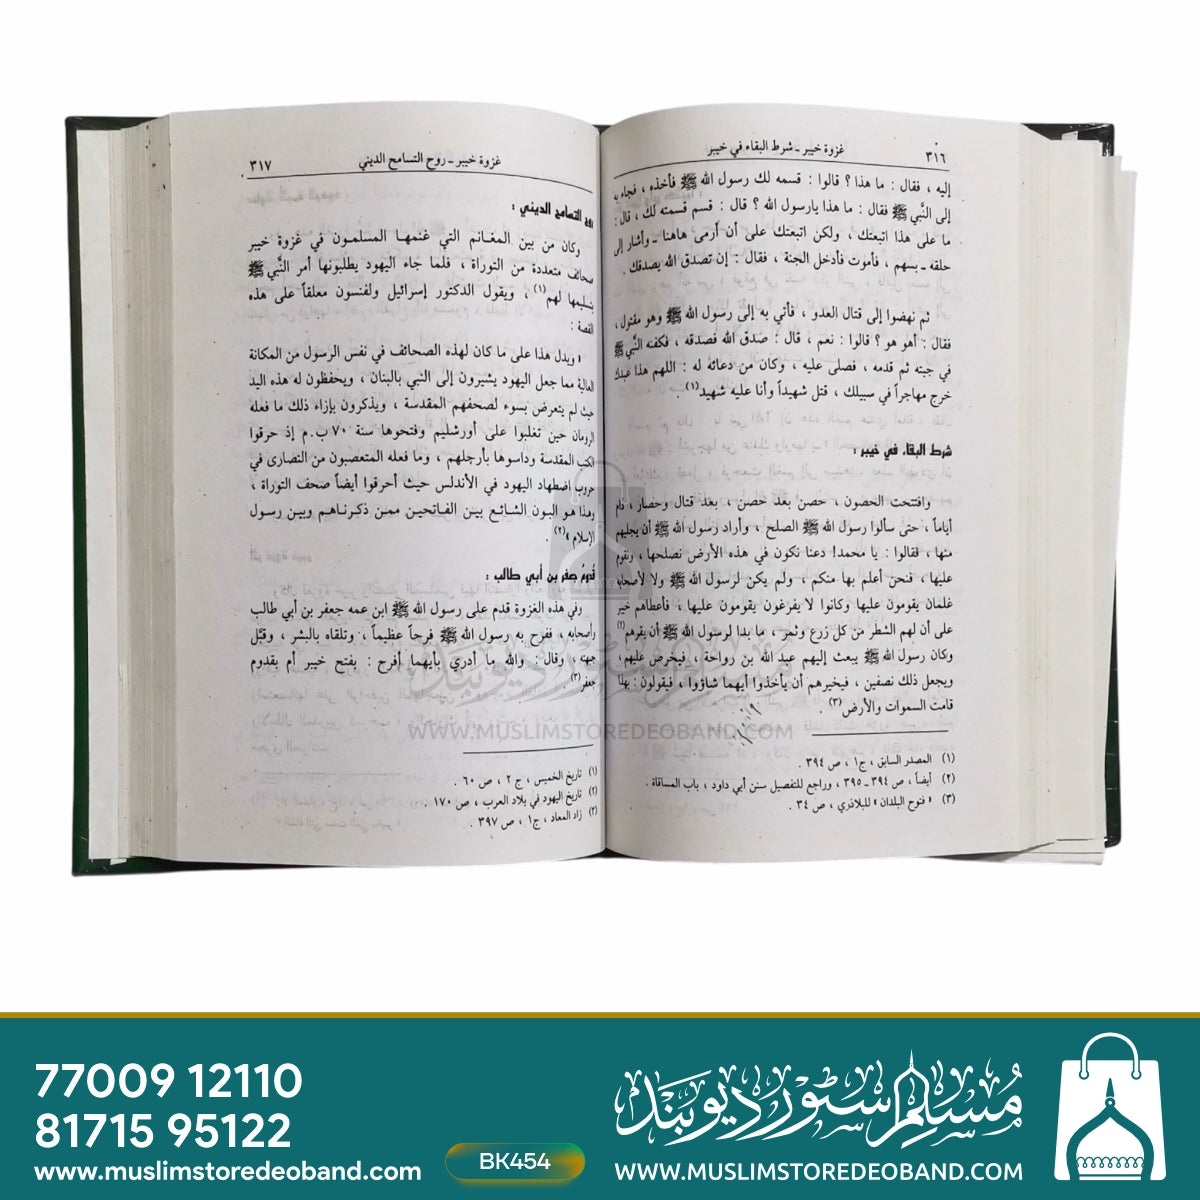 ٣١٦
غزوة خيبر ـ شرط البقاء في خيبر
إليه ، فقال : ما هذا ؟ قالوا : قسمه لك رسول الله ﷺ فأخذه ، فجاء به
إلى النَّبي ﷺ فقال : ما هذا يارسول الله ؟ قال : قسم قسمته لك ، قال :
ما على هذا اتبعتك ، ولكن اتبعتك على أن أرمى هاهنا ـ وأشار إلى
حلقه ـ بسهم ، فأموت فأدخل الجنة ، فقال : إن تصدق الله يصدقك .
ثم نهضوا إلى قتال العدو ، فأتي به إلى رسول الله ﷺ وهو مقتول ،
فقال : أهو هو ؟ قالوا : نعم ، قال : صدق الله فصدقه ، فكفنه النَّبي ﷺ
في جبته ثم قدمه ، فصلى عليه ، وكان من دعائه له : اللهم هذا عبدك
خرج مهاجراً في سبيلك ، قتل شهيداً وأنا عليه شهيد(١) .
شرط البقاء في خيبر :
وافتتحت الحصون ، حصن بعد حصن ، بعد قتال وحصار ، دام
أياماً ، حتى سألوا رسول الله ﷺ الصلح ، وأراد رسول الله ﷺ أن يجليهم
منها ، فقالوا : يا محمد! دعنا نكون في هذه الأرض نصلحها ، ونقوم
عليها ، فنحن أعلم بها منكم ، ولم يكن لرسول الله ﷺ ولا لأصحابه
غلمان يقومون عليها وكانوا لا يفرغون يقومون عليها ، فأعطاهم خيبر
على أن لهم الشطر من كل زرع وثمر ، ما بدا لرسول الله ﷺ أن يقرهم(٢)
وكان رسول الله ﷺ يبعث إليهم عبد الله بن رواحة ، فيخرص عليهم ،
ويجعل ذلك نصفين ، فيخيرهم أن يأخذوا أيهما شاؤوا ، فيقولون : بهذا
قامت السموات والأرض(٣) .
(١) المصدر السابق ، ج١ ، ص ٣٩٤ .
(٢) أيضاً ، ص ٣٩٤ ـ ٣٩٥ ، وراجع للتفصيل سنن أبي داود ، باب المساقاة .
(٣) « فتوح البلدان » للبلاذري ، ص ٣٤ .
غزوة خيبر ـ روح التسامح الديني
٣١٧
روح التسامح الديني :
وكان من بين المغانم التي غنمها المسلمون في غزوة خيبر
صحائف متعددة من التوراة ، فلما جاء اليهود يطلبونها أمر النَّبي ﷺ
بتسليمها لهم(١) ، ويقول الدكتور إسرائيل ولفنسون معلقاً على هذه
القصة :
« ويدل هذا على ما كان لهذه الصحائف في نفس الرسول من المكانة
العالية مما جعل اليهود يشيرون إلى النبي بالبنان ، ويحفظون له هذه اليد
حيث لم يتعرض بسوء لصحفهم المقدسة ، ويذكرون بإزاء ذلك ما فعله
الرومان حين تغلبوا على أورشليم وفتحوها سنة ٧٠ ب . م إذ حرقوا
الكتب المقدسة وداسوها بأرجلهم ، وما فعله المتعصبون من النصارى في
حروب اضطهاد اليهود في الأندلس حيث أحرقوا أيضاً صحف التوراة ،
وهذا هو البون الشائع بين الفاتحين ممن ذكرناهم وبين رسول
الإسلام »(٢) .
قدوم جعفر بن أبي طالب :
وفي هذه الغزوة قدم على رسول الله ﷺ ابن عمه جعفر بن أبي طالب
وأصحابه ، ففرح به رسول الله ﷺ فرحاً عظيماً ، وتلقاه بالبشر ، وقبَّل
جبهته ، وقال : والله ما أدري بأيهما أفرح : بفتح خيبر أم بقدوم
جعفر(٣) .
(١) تاريخ الخميس ، ج ٢ ، ص ٦٠ .
(٢) تاريخ اليهود في بلاد العرب ، ص ١٧٠ .
(٣) زاد المعاد ، ج١ ، ص ٣٩٧ .
WWW.MUSLIMSTOREDEOBAND.COM
77009 12110
81715 95122
www.muslimstoredeoband.com
BK454
مُسلم سٹور دیوبند
WWW.MUSLIMSTOREDEOBAND.COM